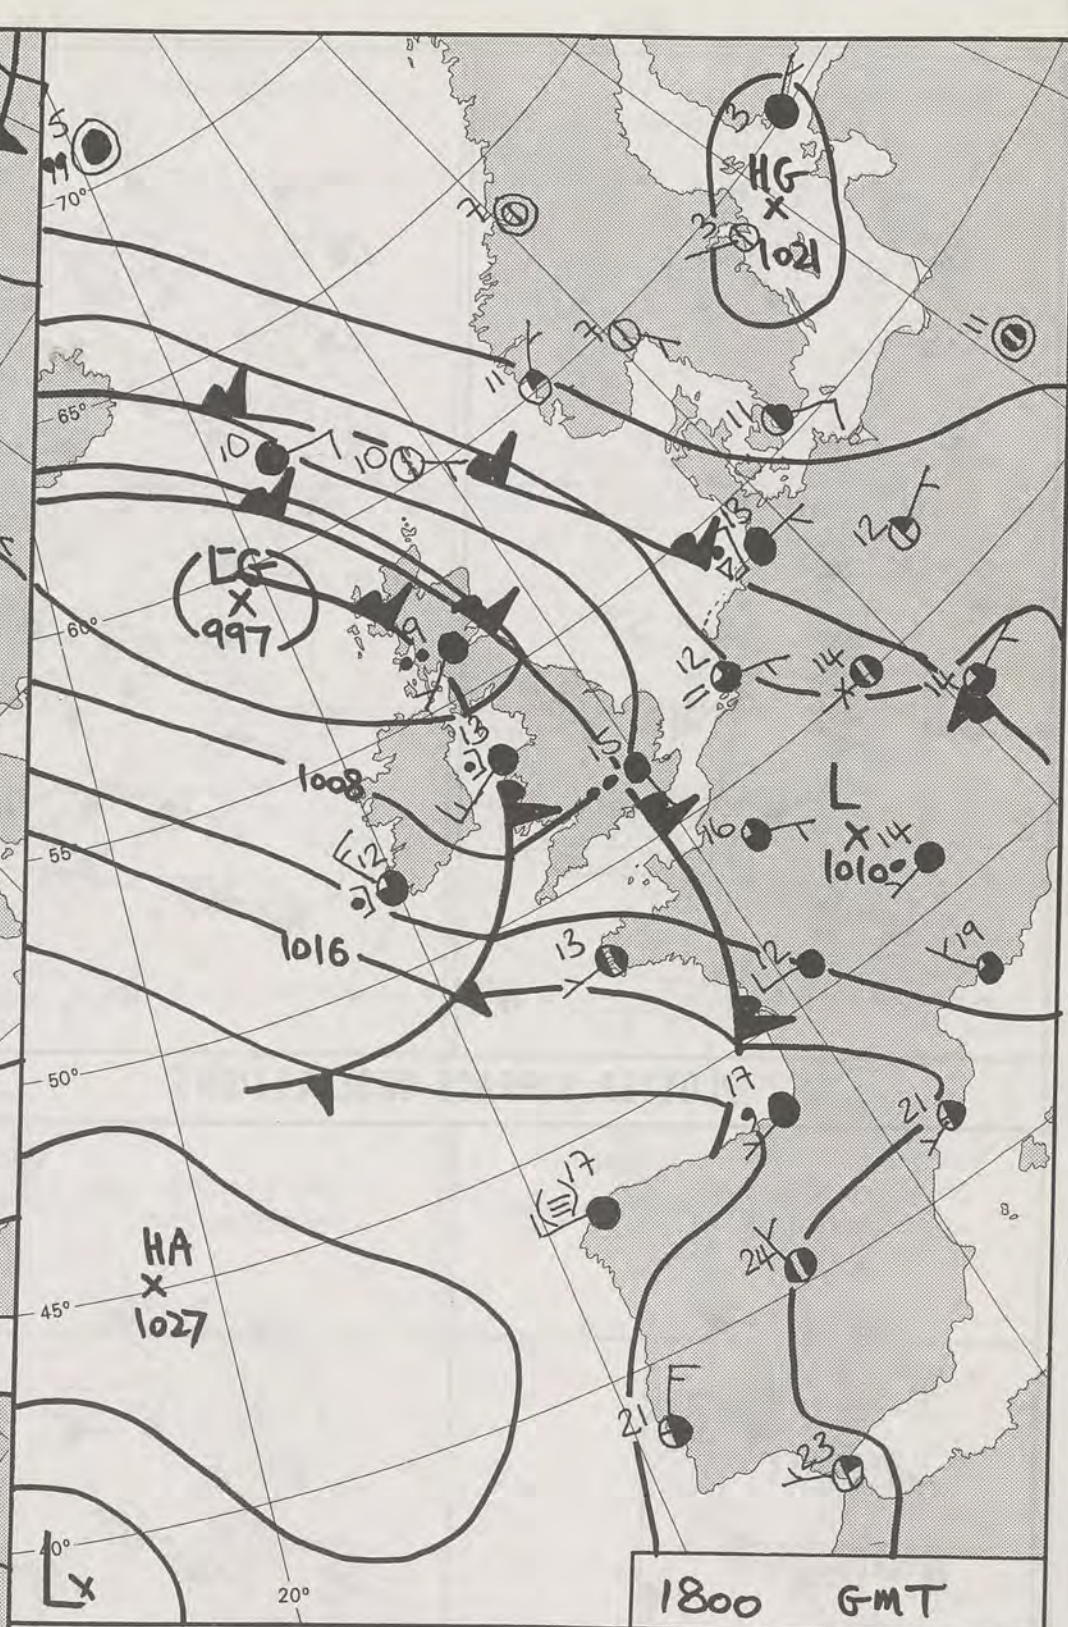 5
99
70°
3
HG
x
1021
3
7
7
11
11
11
65°
10
10
13
12
LG
x
997
60°
9
12
14
14
13
15
1008
L
x 14
1010
16
55°
12
1016
13
12
19
50°
17
21
17
24
HA
x
1027
45°
21
23
40°
L x
20°
1800 GMT